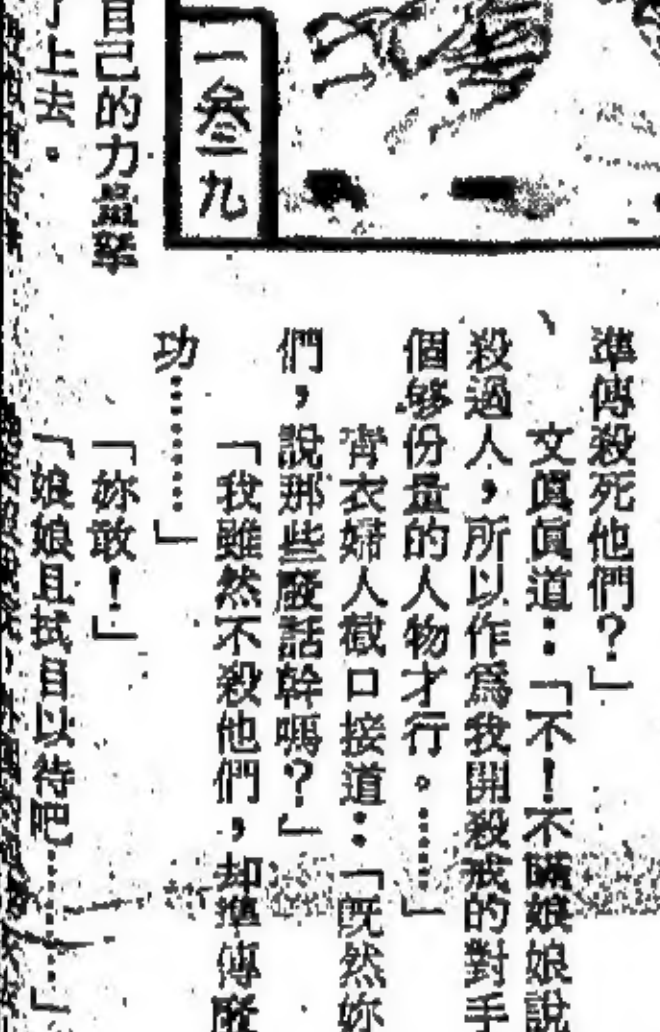 準備殺死他們？」
文眞眞道：「不！不瞞娘娘說
、
殺過人，所以作爲我開殺戒的對手
個够份量的人物才行。……」
青衣婦人截口接道：「既然妳
們，說那些廢話幹嗎？」
「我雖然不殺他們，却準備廢
功………」
「妳敢！」
「娘娘且拭目以待吧………」
一叁九
自己的力量
了上去。